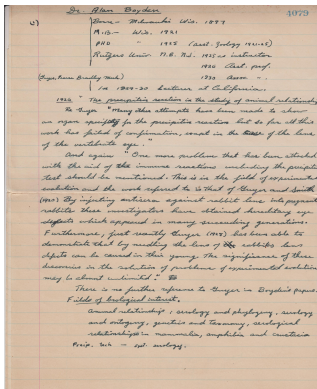 Dr. Alan Boyden
4079
Born - Milwaukee Wis. 1897
A.B. - Wis. 1921
PhD " 1925 (Asst. Zoology 1921-25)
Rutgers Univ N.B. NJ. 1925 as instructor.
Asst. prof.
1930 Assn - .
In 1929-30 Lecturer at California.
1926 "The precipitin reaction in the study of animal relationships
to Guyer "Many other attempts have been made to show
an organ specificity for the precipitin reaction but so far all this
work has failed of confirmation, except in the case of the lens
of the vertebrate eye."
And again "One more problem that has been attacked
with the aid of the immune reactions including the precipitin
test should be mentioned. This is in the field of experimental
evolution and the work referred to is that of Guyer and Smith
By injecting antisera against rabbit lens into pregnant
rabbits these investigators have obtained hereditary eye
defects which appeared in many succeeding generations.
Furthermore, just recently Guyer has been able to
demonstrate that by needling the lens of the rabbits lens
defects can be caused in their young. The significance of these
discoveries in the solution of problems of experimental evolution
may be almost unlimited."
There is no further reference to Guyer in Boyden's papers.
Fields of biological interest.
Animal relationships; serology and phylogeny, serology
and ontogeny, genetics and taxonomy, serological
relationships in mammalia, amphibia and crustacia